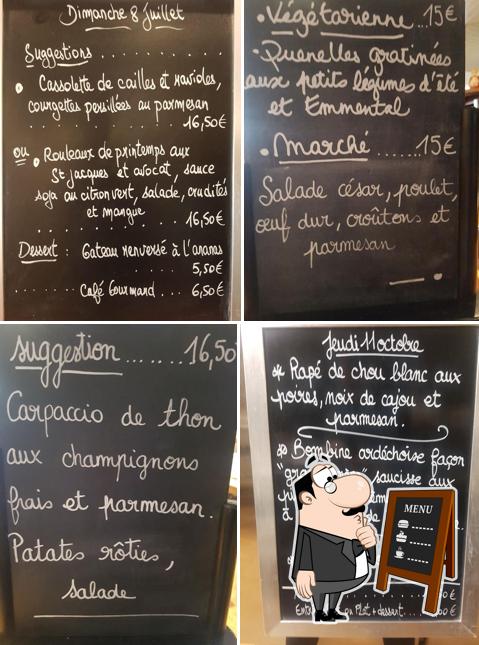 Dimanche 8 Juillet
Suggestions . . . . . . . . . .
• Cassolette de cailles et ravioles,
courgettes persillées au parmesan
. . . . . . . . . . 16,50€
ou • Rouleaux de printemps aux
St jacques et avocat, sauce
soja au citron vert, salade, crudités
et mangue
. . . . . . . . . . 16,50€
Dessert : Gateau renversé à l'ananas
. . . . 5,50€
. . . . . . . Café Gourmand . . . 6,50€
• Végétarienne...15€
• Quenelles gratinées
aux petits légumes d'été
et Emmental
• Marché .......15€
Salade césar, poulet,
œuf dur, croûtons et
parmesan
suggestion.......16,50
Carpaccio de thon
aux champignons
frais et parmesan.
Patates rôties,
salade
Jeudi 11 octobre
* Rapé de chou blanc aux
poires, noix de cajou et
parmesan.
* Bombine ardéchoise façon
saucisse aux
à
MENU
Plat + dessert....